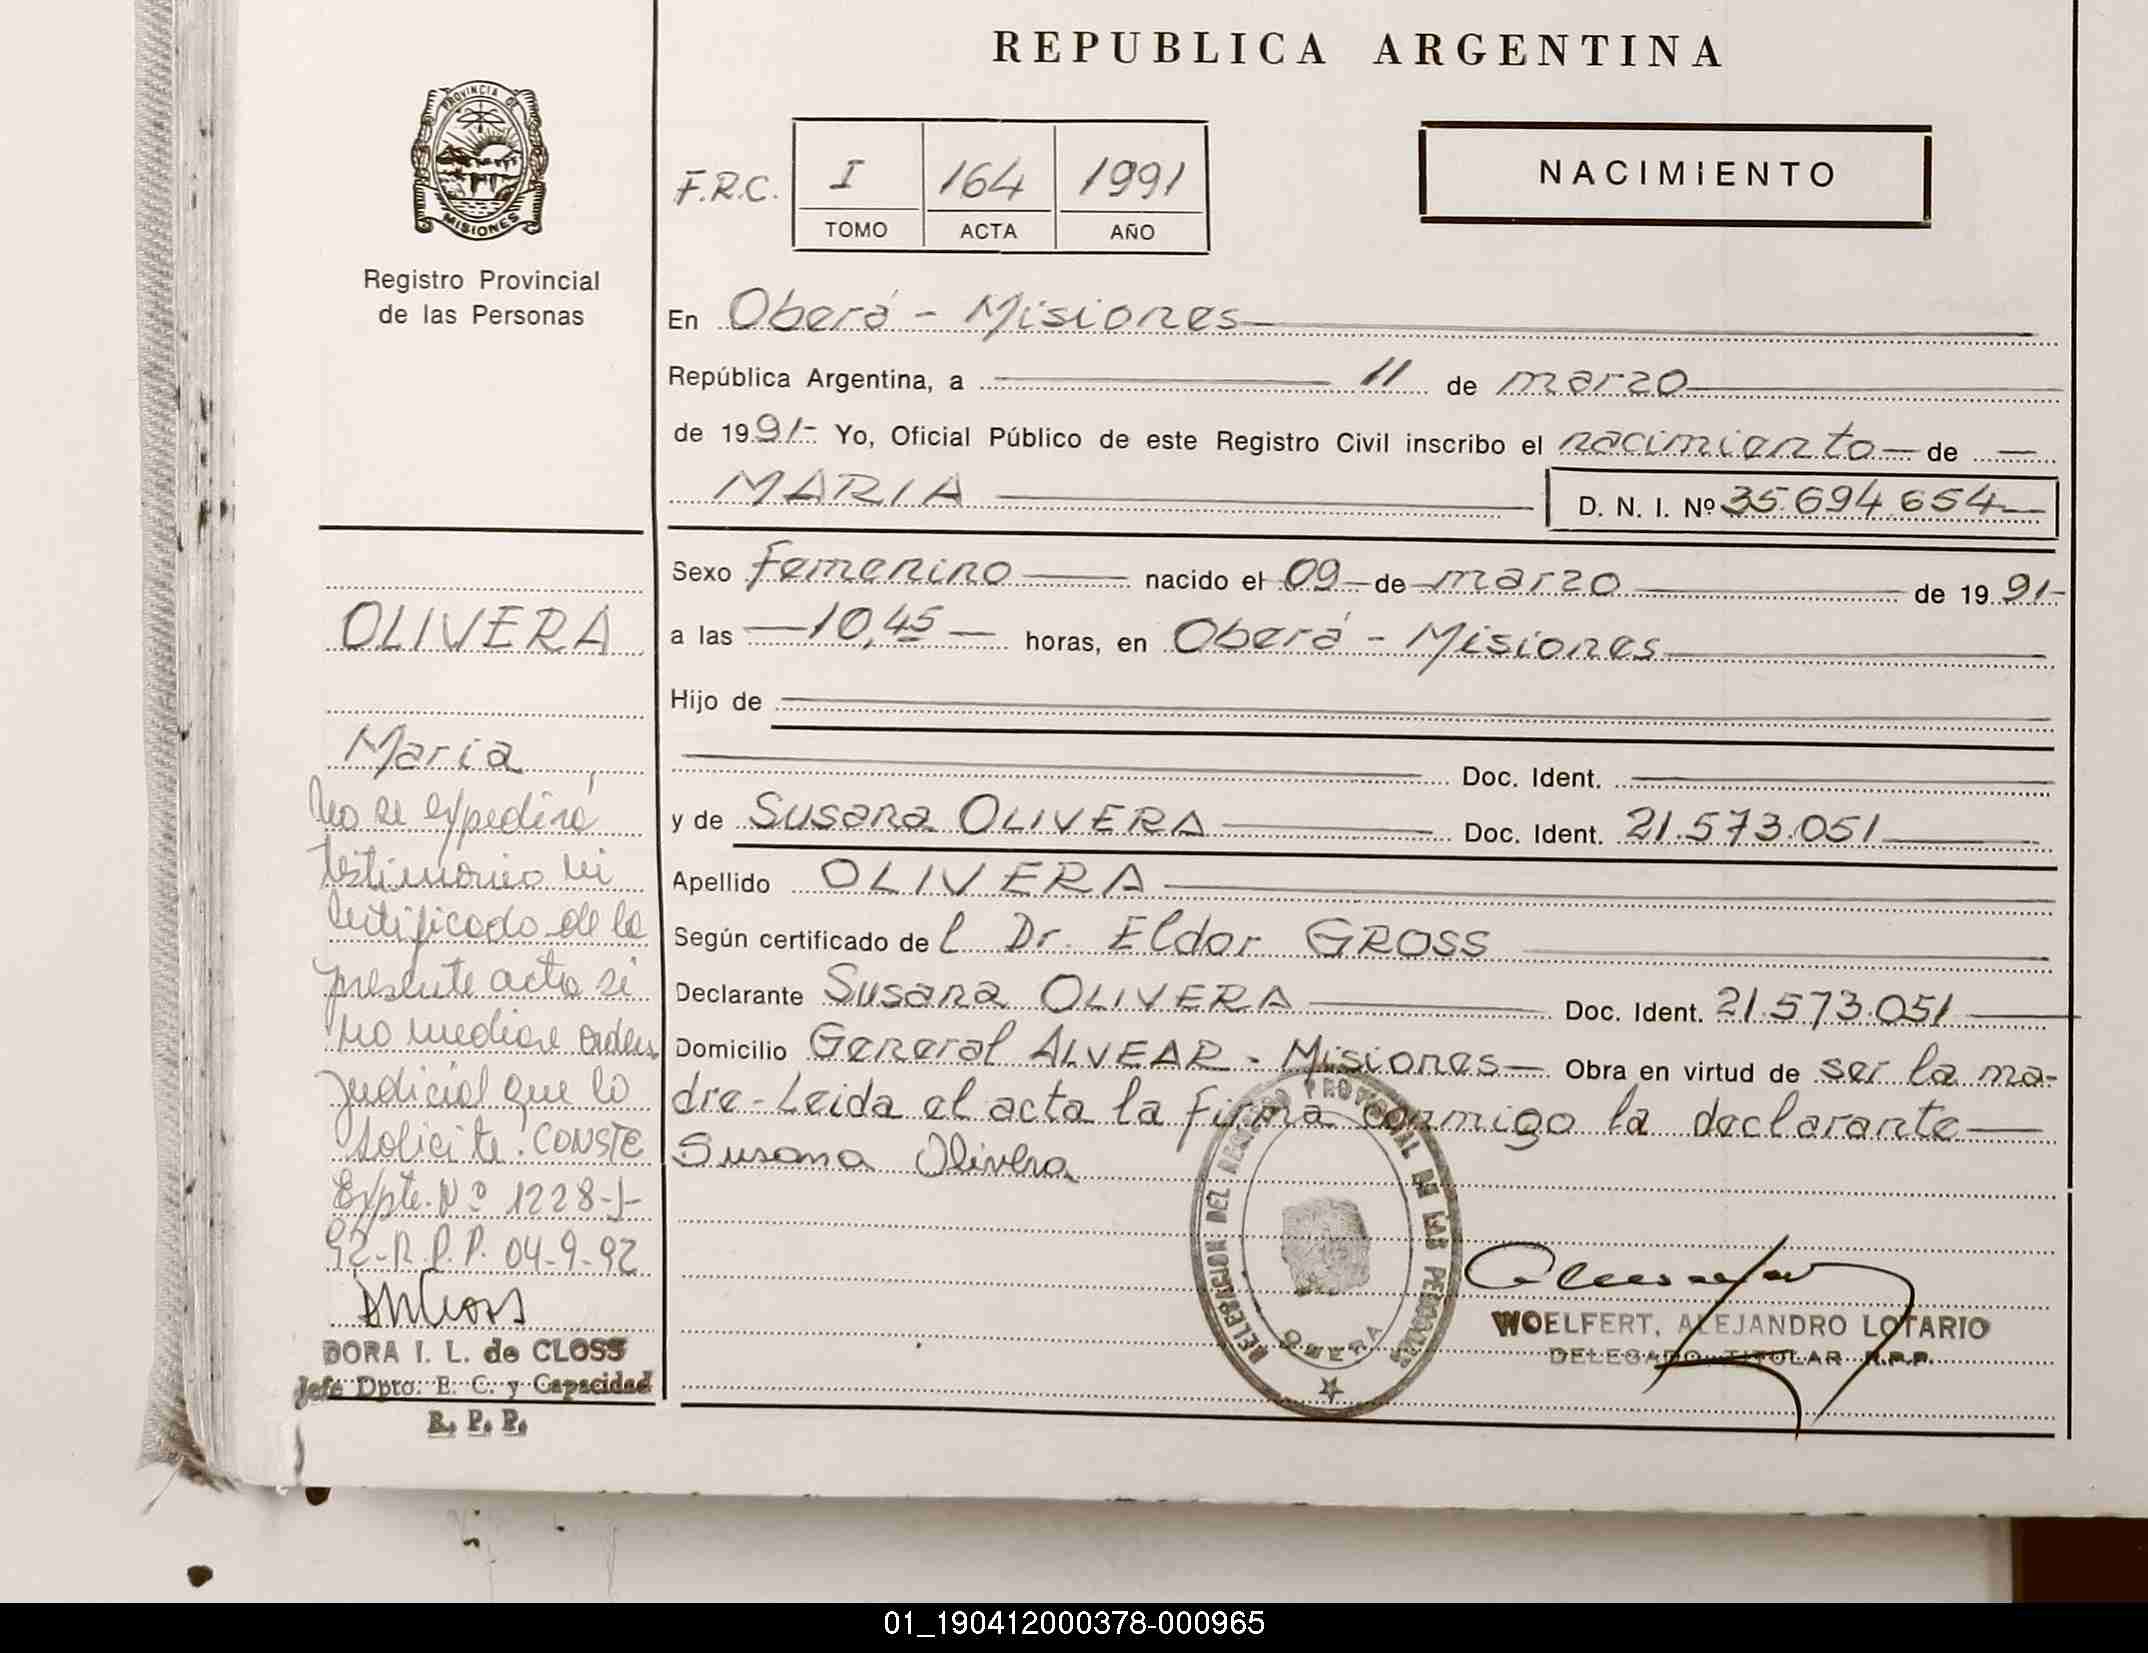 REPUBLICA ARGENTINA
PROVINCIA DE
MISIONES
Registro Provincial
de las Personas
F.R.C. I 164 1991
TOMO ACTA AÑO
NACIMIENTO
En Oberá - Misiones
República Argentina, a 11 de marzo
de 1991- Yo, Oficial Público de este Registro Civil inscribo el nacimiento - de -
MARIA D. N. I. Nº 35.694.654
Sexo Femenino nacido el 09 de marzo de 1991-
a las 10,45 horas, en Oberá - Misiones
Hijo de
Doc. Ident.
y de Susana OLIVERA Doc. Ident. 21.573.051
Apellido OLIVERA
Según certificado del Dr. Eldor GROSS
Declarante Susana OLIVERA Doc. Ident. 21.573.051
Domicilio General ALVEAR - Misiones Obra en virtud de ser la ma-
dre - Leida el acta la firma conmigo la declarante
Susana Olivera
DELEGACION DEL REGISTRO PROVINCIAL DE LAS PERSONAS
OBERA
WOELFERT, ALEJANDRO LOTARIO
DELEGADO TITULAR R.P.P.
OLIVERA
Maria
No se expedirá
testimonio ni
certificado de la
presente acta si
no mediare orden
judicial que lo
solicite. CONSTE
Expte. Nº 1228-J-
92-R.P.P. 04-9-92
DORA I. L. de CLOSS
Jefe Dpto. E. C. y Capacidad
R. P. P.
01_190412000378-000965